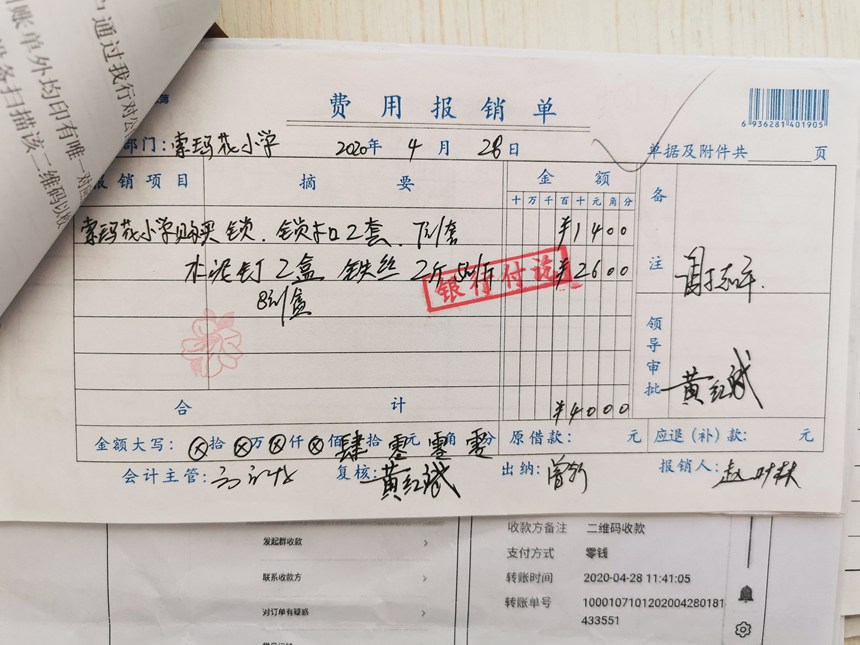 通过我行对公
账单外均印有唯一对
备扫描该二维码以
费用报销单
6 936281 401905
部门：索玛花小学 2020年 4月 28日 单据及附件共 页
报销项目 摘要 金额 备注
十万千百十元角分
索玛花小学购买锁、锁扣2套、7元/套 ¥1400
水泥钉2盒 铁丝2斤 5元/斤 ¥2600
8元/盒
银行付讫
领导审批 黄红斌
合计 ¥4000
金额大写：ⓧ拾ⓧ万ⓧ仟ⓧ佰肆拾零元零角零分 原借款： 元 应退（补）款： 元
会计主管： 复核：黄红斌 出纳：曾 报销人：赵叶林
收款方备注 二维码收款
发起群收款
支付方式 零钱
联系收款方
转账时间 2020-04-28 11:41:05
对订单有疑惑
转账单号 1000107101202004280181
433551